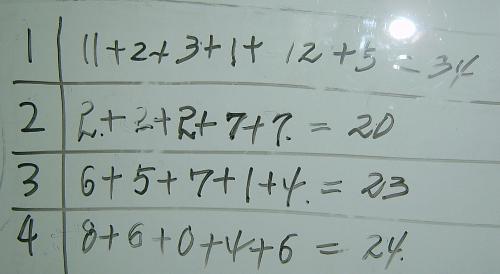 1 11+2+3+1+ 12+5 = 34
2 2.+2+2+7+7. = 20
3 6+5+7+1+4. = 23
4 8+6+0+4+6 = 24.